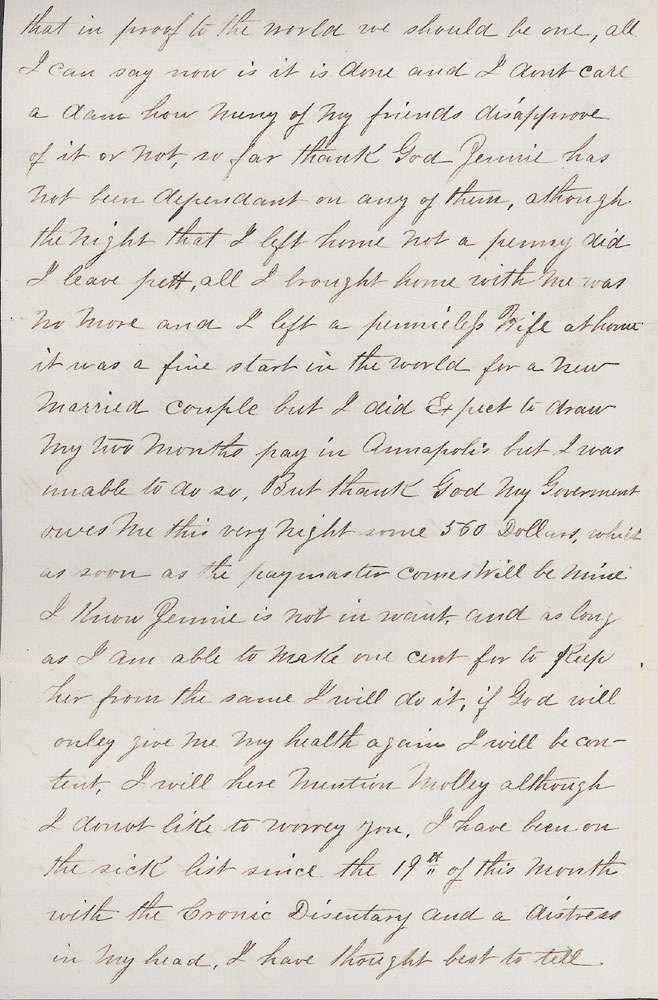 that in proof to the world we should be one, all
I can say now is it is done and I dont care
a dam how meny of my friends disapprove
of it or not, so far thank God Jennie has
not been dependant on any of them, athough
the night that I left home not a penny did
I leave all I brought home with me was
no more and I left a pennieless Wife at home
it was a fine start in the world for a new
married couple but I did Expect to draw
my two months pay in Annapolis but I was
unable to do so, But thank God my Goverment
owes me this very night some 560 Dollars, which
as soon as the paymaster comes will be mine
I Know Jennie is not in want, and as long
as I am able to make one cent for to Keep
her from the same I will do it, if God will
onley give me my health again I will be con-
tent, I will here mention Molley although
I donot like to worrey you, I have been on
the sick list since the 19th of this month
with the Cronic Disentary and a distress
in my head, I have thought best to tell